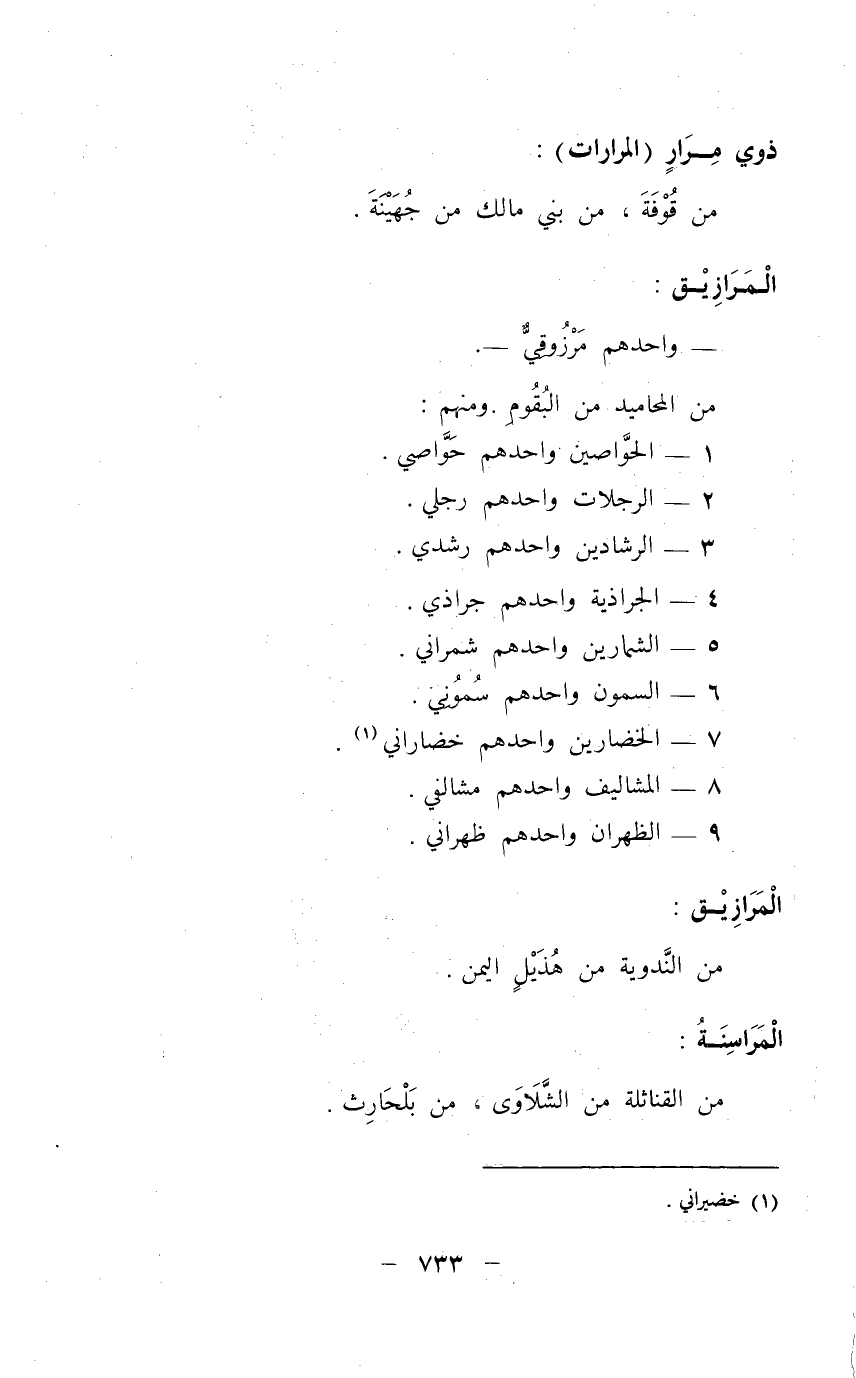 ذوي مِـرَارٍ (المرارات) :
من قُوْفَةَ ، من بني مالك من جُهَيْنَةَ .
الْـمَـرَازِيْـق :
— واحدهم مَرْزُوقِيٌّ —.
من المحاميد من البُقُومِ .ومنهم :
١ — الحَّواصين واحدهم حَوَّاصي .
٢ — الرجلات واحدهم رجلي .
٣ — الرشادين واحدهم رشدي .
٤ — الجراذية واحدهم جراذي .
٥ — الشمارين واحدهم شمراني .
٦ — السمون واحدهم سُمُوُنِيَ .
٧ — الخضارين واحدهم خضاراني(١) .
٨ — المشاليف واحدهم مشالفي .
٩ — الظهران واحدهم ظهراني .
الْمَرَازِيْـق :
من النَّدوية من هُذَيْلٍ اليمن .
الْمَرَاسِنَـةُ :
من القناثلة من الشَّلَاوَى ، من بَلْحَارِث .
(١) خضيراني .
– ٧٣٣ –